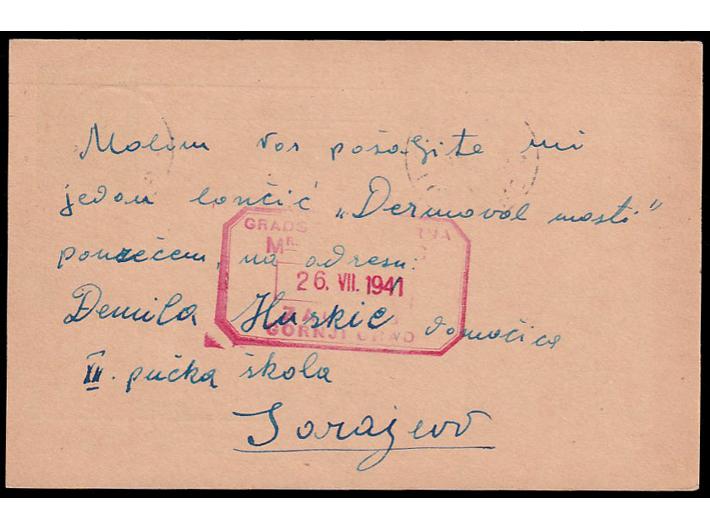 Molim vas pošaljite mi
jedan lončić „Dermoval masti"
pouzećem, na adresu:
Demila Huskić domaćica
II. pučka škola
Sarajevo
GRADS
MR.
26. VII. 1941
GORNJI GRAD